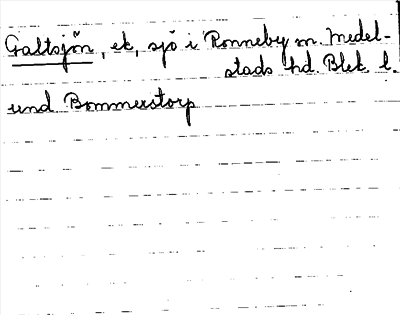 Galtsjön, ek, sjö i Ronneby m. Medel-
stads hd. Blek. l.
und Bommerstorp